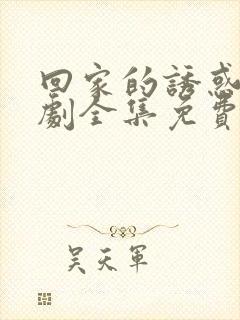 回家的誘惑
劇全集免費
吴天軍